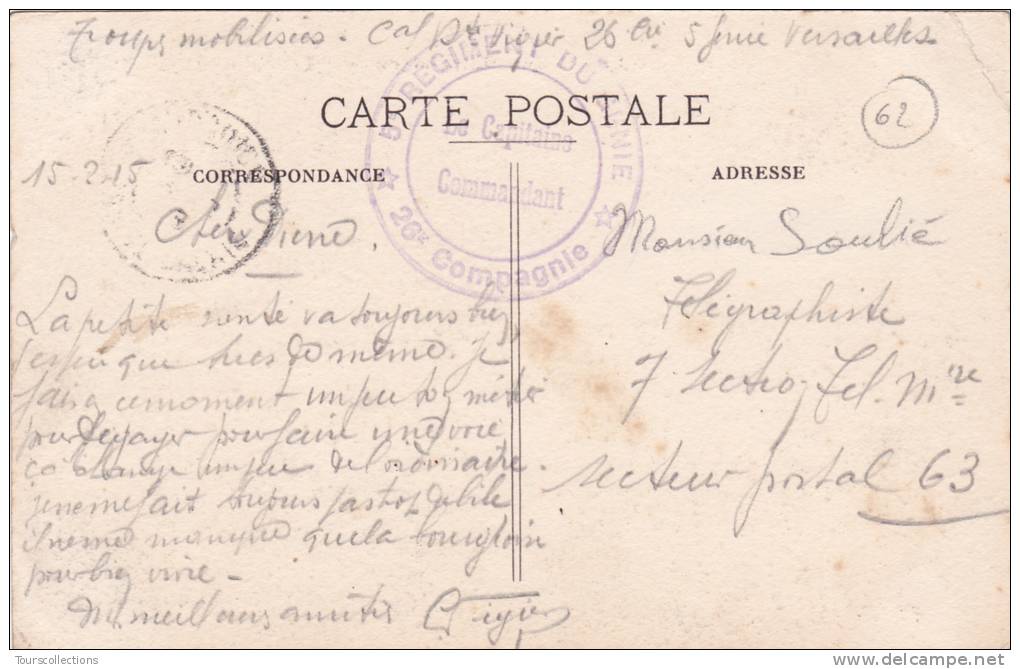 Troupes mobilisées. Cal Dt Vigier 26 Cie 5 Génie Versailles
5e REGIMENT DU GENIE
Le Capitaine
Commandant
26e Compagnie
62
CARTE POSTALE
CORRESPONDANCE
ADRESSE
15-2-15
Cher Pierre,
La petite santé va toujours bien,
j'espère que de même. Je
fais en ce moment un peu ton métier
pour faire une voie
ça change un peu de l'ordinaire.
je ne me fait toujours pas trop de bile
il ne me manque que la
pour bien vivre -
Mes meilleurs amitiés Vigier
Monsieur Soulié
Télégraphiste
7 Section Tel. Mire
secteur postal 63
Tourscollections
delcampe.net